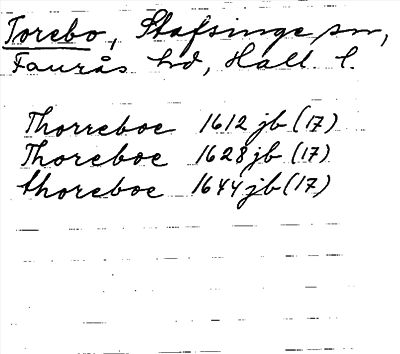 Torebo, Stafsinge sn,
Faurås hd, Hall. l.
Thorreboe 1612 jb (17)
Thoreboe 1628 jb (17)
thoreboe 1644 jb (17)